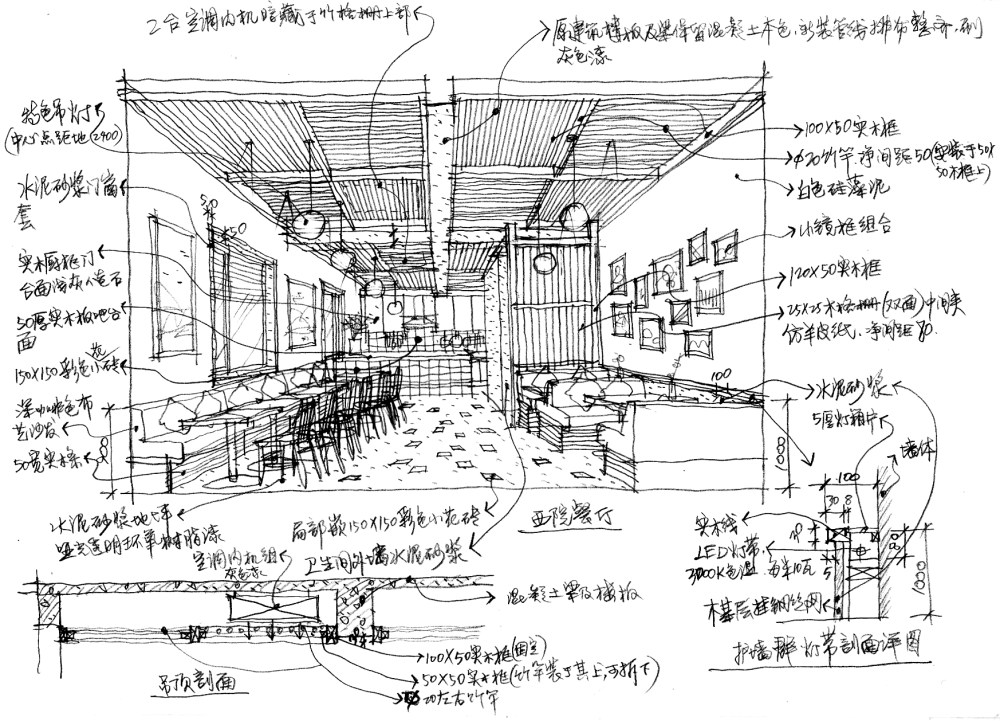 2台空调内机暗藏于竹格栅上部
原建筑楼板及梁保留混凝土本色,新装管线排布整齐,刷
灰色漆
特色吊灯
(中心点距地2400)
水泥砂浆门窗
套
50
50
实木厨柜门
台面浅灰人造石
50厚实木板吧台
面
150X150彩色小花砖
深咖啡色布
艺沙发
50宽实木条
100X50实木框
Φ20竹竿.净间距50(安装于50X
50木框上)
白色硅藻泥
小镜框组合
120X50实木框
25X25木格栅(双面)中间夹
仿羊皮纸.净间距80.
100
水泥砂浆
5厚灯箱片
墙体
100
30 8
实木线
LED灯带,
3000K色温.每米10瓦
5
木基层挂钢丝网
1000
护墙群灯带剖面详图
水泥砂浆地坪
哑光透明环氧树脂漆
局部嵌150X150彩色小花砖
西院餐厅
卫生间外墙水泥砂浆
空调内机组
灰色漆
混凝土梁及楼板
100X50实木框(固定)
50X50实木框(竹竿装于其上,可拆下)
Φ20左右竹竿
吊顶剖面